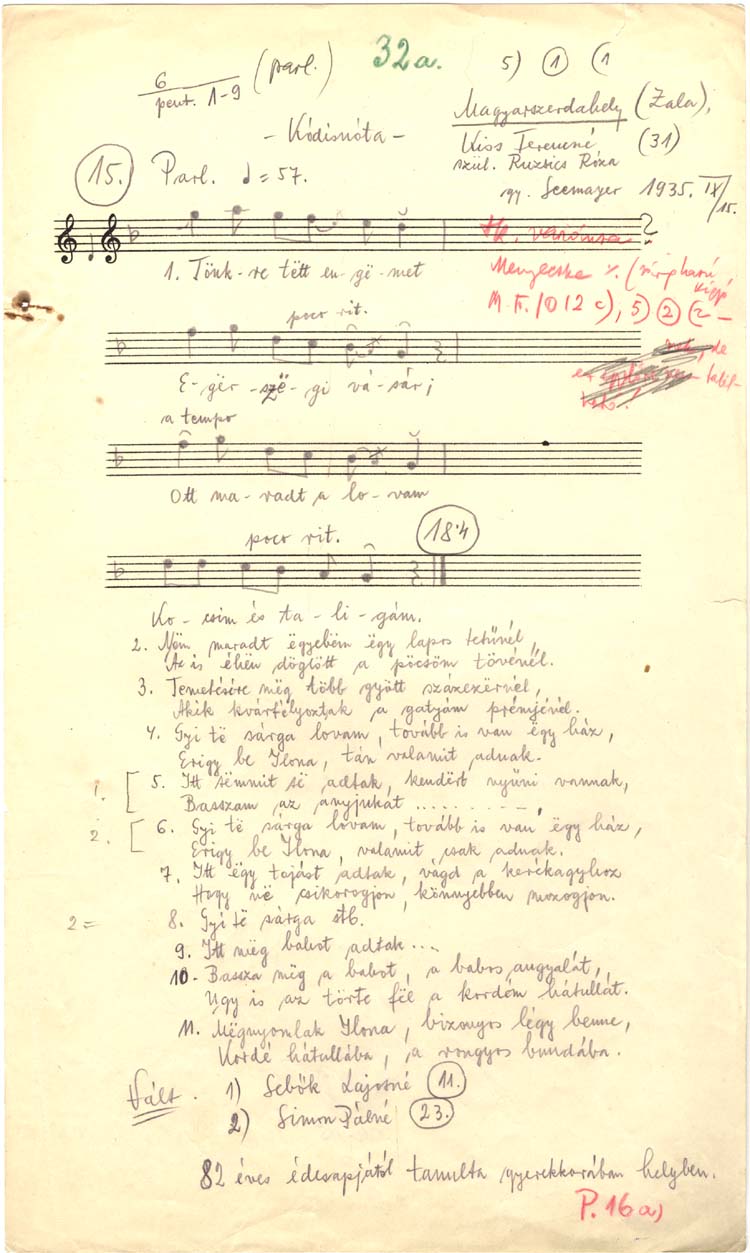 6 (parl.) 32a. 5) ① (1
pent. 1-9
Magyarszerdahely (Zala),
- Kódisnóta -
Kiss Ferencné (31)
szül. Ruzsics Róza
15. Parl. ♩ = 57.
gy. Seemayer 1935. IX/15.
?
1. Tönk-re tëtt en-gë-met
Menyecske
M.F. 1012 c), 5) ② (2 -
poco rit.
, de
E-gër-szë-gi vá-sár;
a tempo
Ott ma-radt a lo-vam
poco rit. 18·4
Ko-csim és ta-li-gám.
2. Nëm maradt ëgyebëm ëgy lapos tetűnél,
Az is éhën döglött a pöcsöm tövénél.
3. Temetésére mëg több gyött százezërnél,
Akik kvárfélyoztak a gatyám prémjénél.
4. Gyi të sárga lovam, tovább is van ëgy ház,
Erigy be Ilona, tán valamit adnak.
1. 5. Itt sëmmit së adtak, kendërt nyűni vannak,
Basszam az anyjukát ..........,
2. 6. Gyi të sárga lovam, tovább is van ëgy ház,
Erigy be Ilona, valamit csak adnak.
7. Itt ëgy tojást adtak, vágd a kerékagyhoz
Hogy në csikorogjon, könnyebben mozogjon.
2= 8. Gyi të sárga stb.
9. Itt mëg babot adtak ...
10. Bassza mëg a babot, a babos angyalát,
Ugy is az törte fël a kordém hátullát.
11. Mëgnyomlak Ilona, bizonyos légy benne,
Kordé hátullába, a rongyos bundába.
Vált. 1) Sebők Lajosné 11.
2) Simon Pálné 23.
82 éves édesapjától tanulta gyerekkorában helyben.
P. 16a)